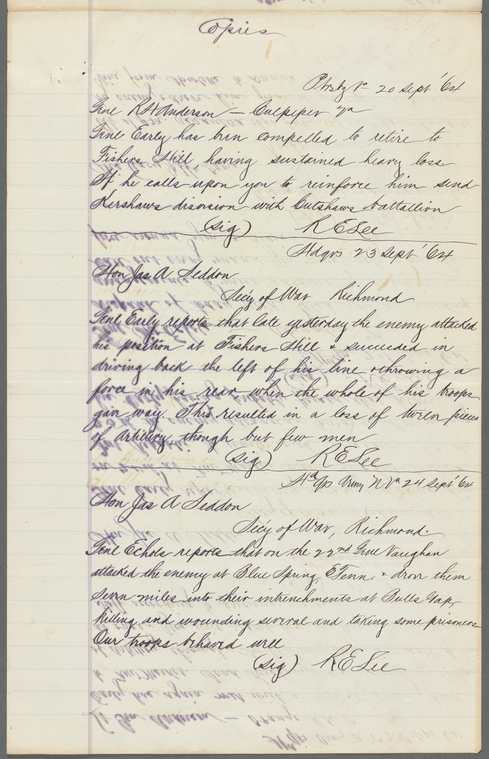 Copies
Ptrsbg Va 20 Sept '64
Genl R H Anderson — Culpeper Va
Genl Early has been compelled to retire to
Fishers Hill having sustained heavy loss
If he calls upon you to reinforce him send
Kershaws division with Cutshaws battallion
(sig) R E Lee
Hdqrs 23 Sept '64
Hon Jas A Seddon
Sec'y of War Richmond
Genl Early reports that late yesterday the enemy attacked
his position at Fishers Hill & succeeded in
driving back the left of his line & throwing a
force in his rear when the whole of his troops
gave way. This resulted in a loss of twelve pieces
of artillery though but few men
(sig) R E Lee
Hd Qrs Army N. Va 24 Sept '64
Hon Jas A Seddon
Sec'y of War, Richmond.
Genl Echols reports that on the 22nd Genl Vaughan
attacked the enemy at Blue Spring, E Tenn. & drove them
seven miles into their intrenchments at Bulls Gap,
killing and wounding several and taking some prisoners
Our troops behaved well
(sig) R E Lee